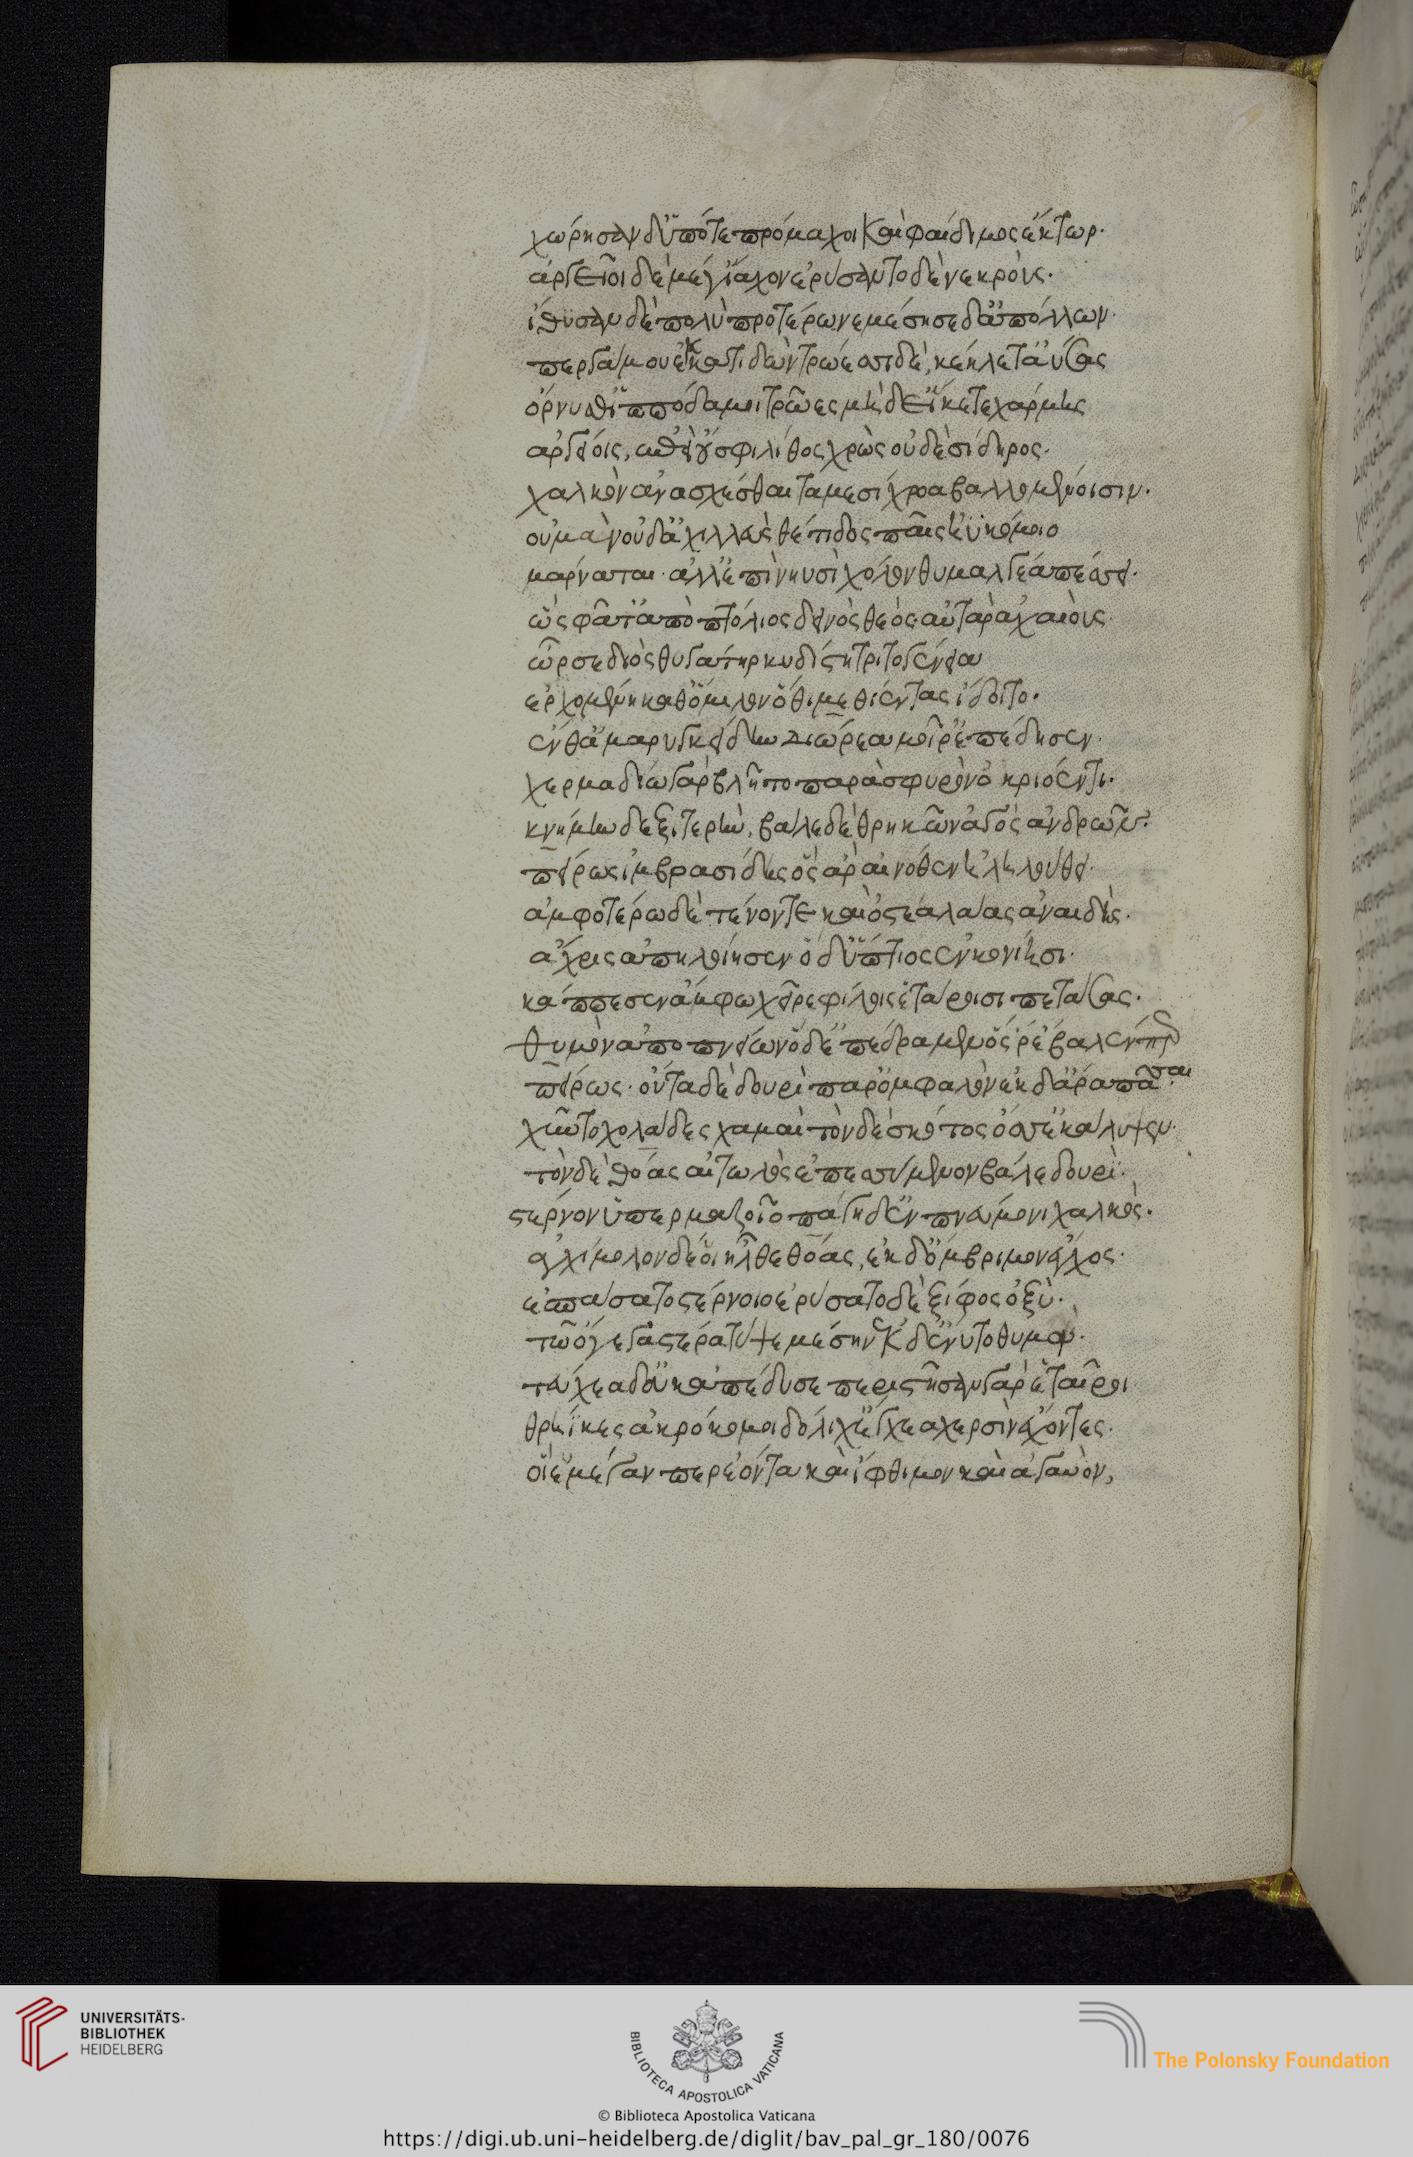 χώρησαν δ' ὑπό τε πρόμαχοι καὶ φαίδιμος ἕκτωρ.
ἀργεῖοι δὲ μέγ' ἴαχον ἐρύσαντο δὲ νεκρούς.
ἴθυσαν δὲ πολὺ προτέρω νεμέσησε δ' ἀπόλλων
περγάμου ἐκ κατιδὼν τρώεσσι δὲ κέκλετ' ἀΰσας
ὄρνυσθ' ἱππόδαμοι τρῶες μὴδ' εἴκετε χάρμης
ἀργείοις, ἐπεὶ οὔ σφι λίθος χρὼς οὐδὲ σίδηρος.
χαλκὸν ἀνασχέσθαι ταμεσίχροα βαλλομένοισιν.
οὐ μὰν οὐδ' ἀχιλλεὺς θέτιδος παῖς ἠϋκόμοιο
μάρναται. ἀλλ' ἐπὶ νηυσὶ χόλον θυμαλγέα πέσσει.
ὣς φάτ' ἀπὸ πτόλιος δεινὸς θεός. αὐτὰρ ἀχαιοὺς
ὦρσε διὸς θυγάτηρ κυδίστη τριτογένεια
ἐρχομένη καθ' ὅμιλον ὅθι μεθιέντας ἴδοιτο.
ἔνθ' ἀμαρυγκείδην διώρεα μοῖρ' ἐπέδησεν.
χερμαδίω γὰρ βλῆτο παρὰ σφυρὸν ὀκριόεντι.
κνήμην δεξιτερήν, βάλε δὲ θρηκῶν ἀγὸς ἀνδρῶν.
πείρως ἰμβρασίδης ὅς ἄρ' αἰνόθεν εἰληλούθει.
ἀμφοτέρω δὲ τένοντε καὶ ὀστέα λᾶας ἀναιδὴς.
ἄχρις ἀπηλοίησεν ὁ δ' ὕπτιος ἐν κονίησι.
κάππεσεν ἄμφω χεῖρε φίλοις ἑτάροισι πετάσας.
θυμὸν ἀποπνείων ὁ δ' ἐπέδραμεν ὅς ῥ' ἔβαλέν περ
πείρως. οὖτα δὲ δουρὶ παρ' ὀμφαλὸν ἐκ δ' ἄρα πᾶσαι
χύντο χολάδες χαμαὶ τὸν δὲ σκότος ὄσσ' ἐκάλυψεν.
τὸν δὲ θόας αἰτωλὸς ἐπεσσύμενον βάλε δουρί.
στέρνον ὑπὲρ μαζοῖο πάγη δ' ἐν πνεύμονι χαλκὸς.
ἀγχίμολον δέ οἱ ἦλθε θόας, ἐκ δ' ὄμβριμον ἔγχος.
ἐσπάσατο στέρνοιο ἐρύσατο δὲ ξίφος ὀξύ.
τῶ ὅγε γαστέρα τύψε μέσην ἐκ δ' αἴνυτο θυμόν.
τεύχεα δ' οὐκ ἀπέδυσε περίστησαν γὰρ ἑταῖροι
θρήϊκες ἀκρόκομοι δολίχ' ἔγχεα χερσὶν ἔχοντες.
οἵ ἑ μέγαν περ ἐόντα καὶ ἴφθιμον καὶ ἀγαυὸν,
UNIVERSITÄTS-
BIBLIOTHEK
HEIDELBERG
BIBLIOTECA APOSTOLICA VATICANA
© Biblioteca Apostolica Vaticana
The Polonsky Foundation
https://digi.ub.uni-heidelberg.de/diglit/bav_pal_gr_180/0076